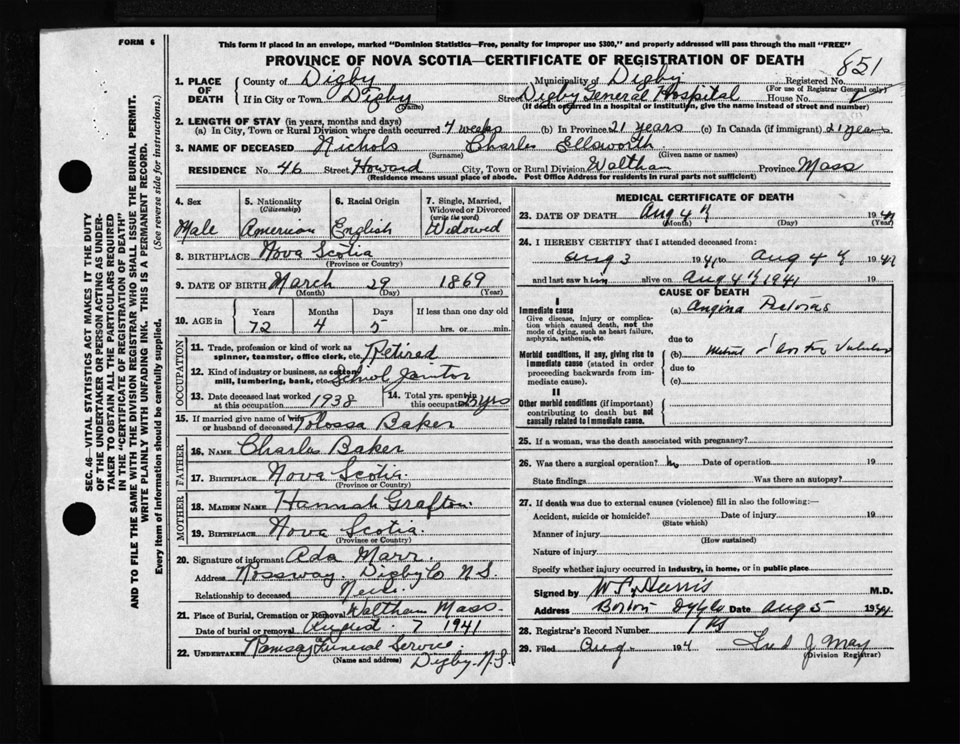 FORM 6
This form if placed in an envelope, marked "Dominion Statistics—Free, penalty for improper use $300," and properly addressed will pass through the mail "FREE"
PROVINCE OF NOVA SCOTIA—CERTIFICATE OF REGISTRATION OF DEATH
851
1. PLACE OF DEATH County of Digby Municipality of Digby Registered No.
(For use of Registrar General only)
If in City or Town Digby Street Digby General Hospital House No.
(Name) (If death occurred in a hospital or institution, give the name instead of street and number)
2. LENGTH OF STAY (in years, months and days)
(a) In City, Town or Rural Division where death occurred 4 weeks (b) In Province 21 years (c) In Canada (if immigrant) 21 years
3. NAME OF DECEASED Nichols Charles Ellsworth
(Surname) (Given name or names)
RESIDENCE No. 46 Street Howard City, Town or Rural Division Waltham Province Mass
(Residence means usual place of abode. Post Office Address for residents in rural parts not sufficient)
4. Sex 5. Nationality (Citizenship) 6. Racial Origin 7. Single, Married, Widowed or Divorced (write the word)
Male American English Widowed
8. BIRTHPLACE Nova Scotia
(Province or Country)
9. DATE OF BIRTH March 29 1869
(Month) (Day) (Year)
10. AGE in Years Months Days If less than one day old
72 4 5 hrs. or min.
OCCUPATION
11. Trade, profession or kind of work as spinner, teamster, office clerk, etc. Retired
12. Kind of industry or business, as cotton mill, lumbering, bank, etc. School Janitor
13. Date deceased last worked at this occupation 1938 14. Total yrs. spent in this occupation yrs
15. If married give name of wife or husband of deceased Baker
FATHER
16. NAME Charles Baker
17. BIRTHPLACE Nova Scotia
(Province or Country)
MOTHER
18. MAIDEN NAME Hannah Grafton
19. BIRTHPLACE Nova Scotia
(Province or Country)
20. Signature of informant Ada Marr
Address Rossway Digby Co N.S.
Relationship to deceased Neice
21. Place of Burial, Cremation or Removal Waltham Mass.
Date of burial or removal August 7 1941
22. UNDERTAKER Ramsay Funeral Service
(Name and address) Digby N.S.
MEDICAL CERTIFICATE OF DEATH
23. DATE OF DEATH Aug 4th 1941
(Month) (Day) (Year)
24. I HEREBY CERTIFY that I attended deceased from:
Aug 3 1941 to Aug 4th 1941
and last saw him alive on Aug 4th 1941
CAUSE OF DEATH
I
Immediate cause (a) Angina Pectoris
Give disease, injury or complication which caused death, not the mode of dying, such as heart failure, asphyxia, asthenia, etc.
due to
Morbid conditions, if any, giving rise to immediate cause (stated in order proceeding backwards from immediate cause).
(b)
due to
(c)
II
Other morbid conditions (if important) contributing to death but not causally related to immediate cause.
25. If a woman, was the death associated with pregnancy?
26. Was there a surgical operation? No Date of operation 19
State findings Was there an autopsy?
27. If death was due to external causes (violence) fill in also the following:—
Accident, suicide or homicide? Date of injury 19
(State which)
Manner of injury
(How sustained)
Nature of injury
Specify whether injury occurred in industry, in home, or in public place
Signed by M.D.
Address Date Aug 5 1941
28. Registrar's Record Number
29. Filed Aug 194 Fred J. May
(Division Registrar)
SEC. 46—VITAL STATISTICS ACT MAKES IT THE DUTY
OF THE UNDERTAKER OR PERSON ACTING AS UNDERTAKER
TO OBTAIN ALL THE PARTICULARS REQUIRED
IN THE "CERTIFICATE OF REGISTRATION OF DEATH"
AND TO FILE THE SAME WITH THE DIVISION REGISTRAR WHO SHALL ISSUE THE BURIAL PERMIT.
WRITE PLAINLY WITH UNFADING INK. THIS IS A PERMANENT RECORD.
Every item of information should be carefully supplied. (See reverse side for instructions.)